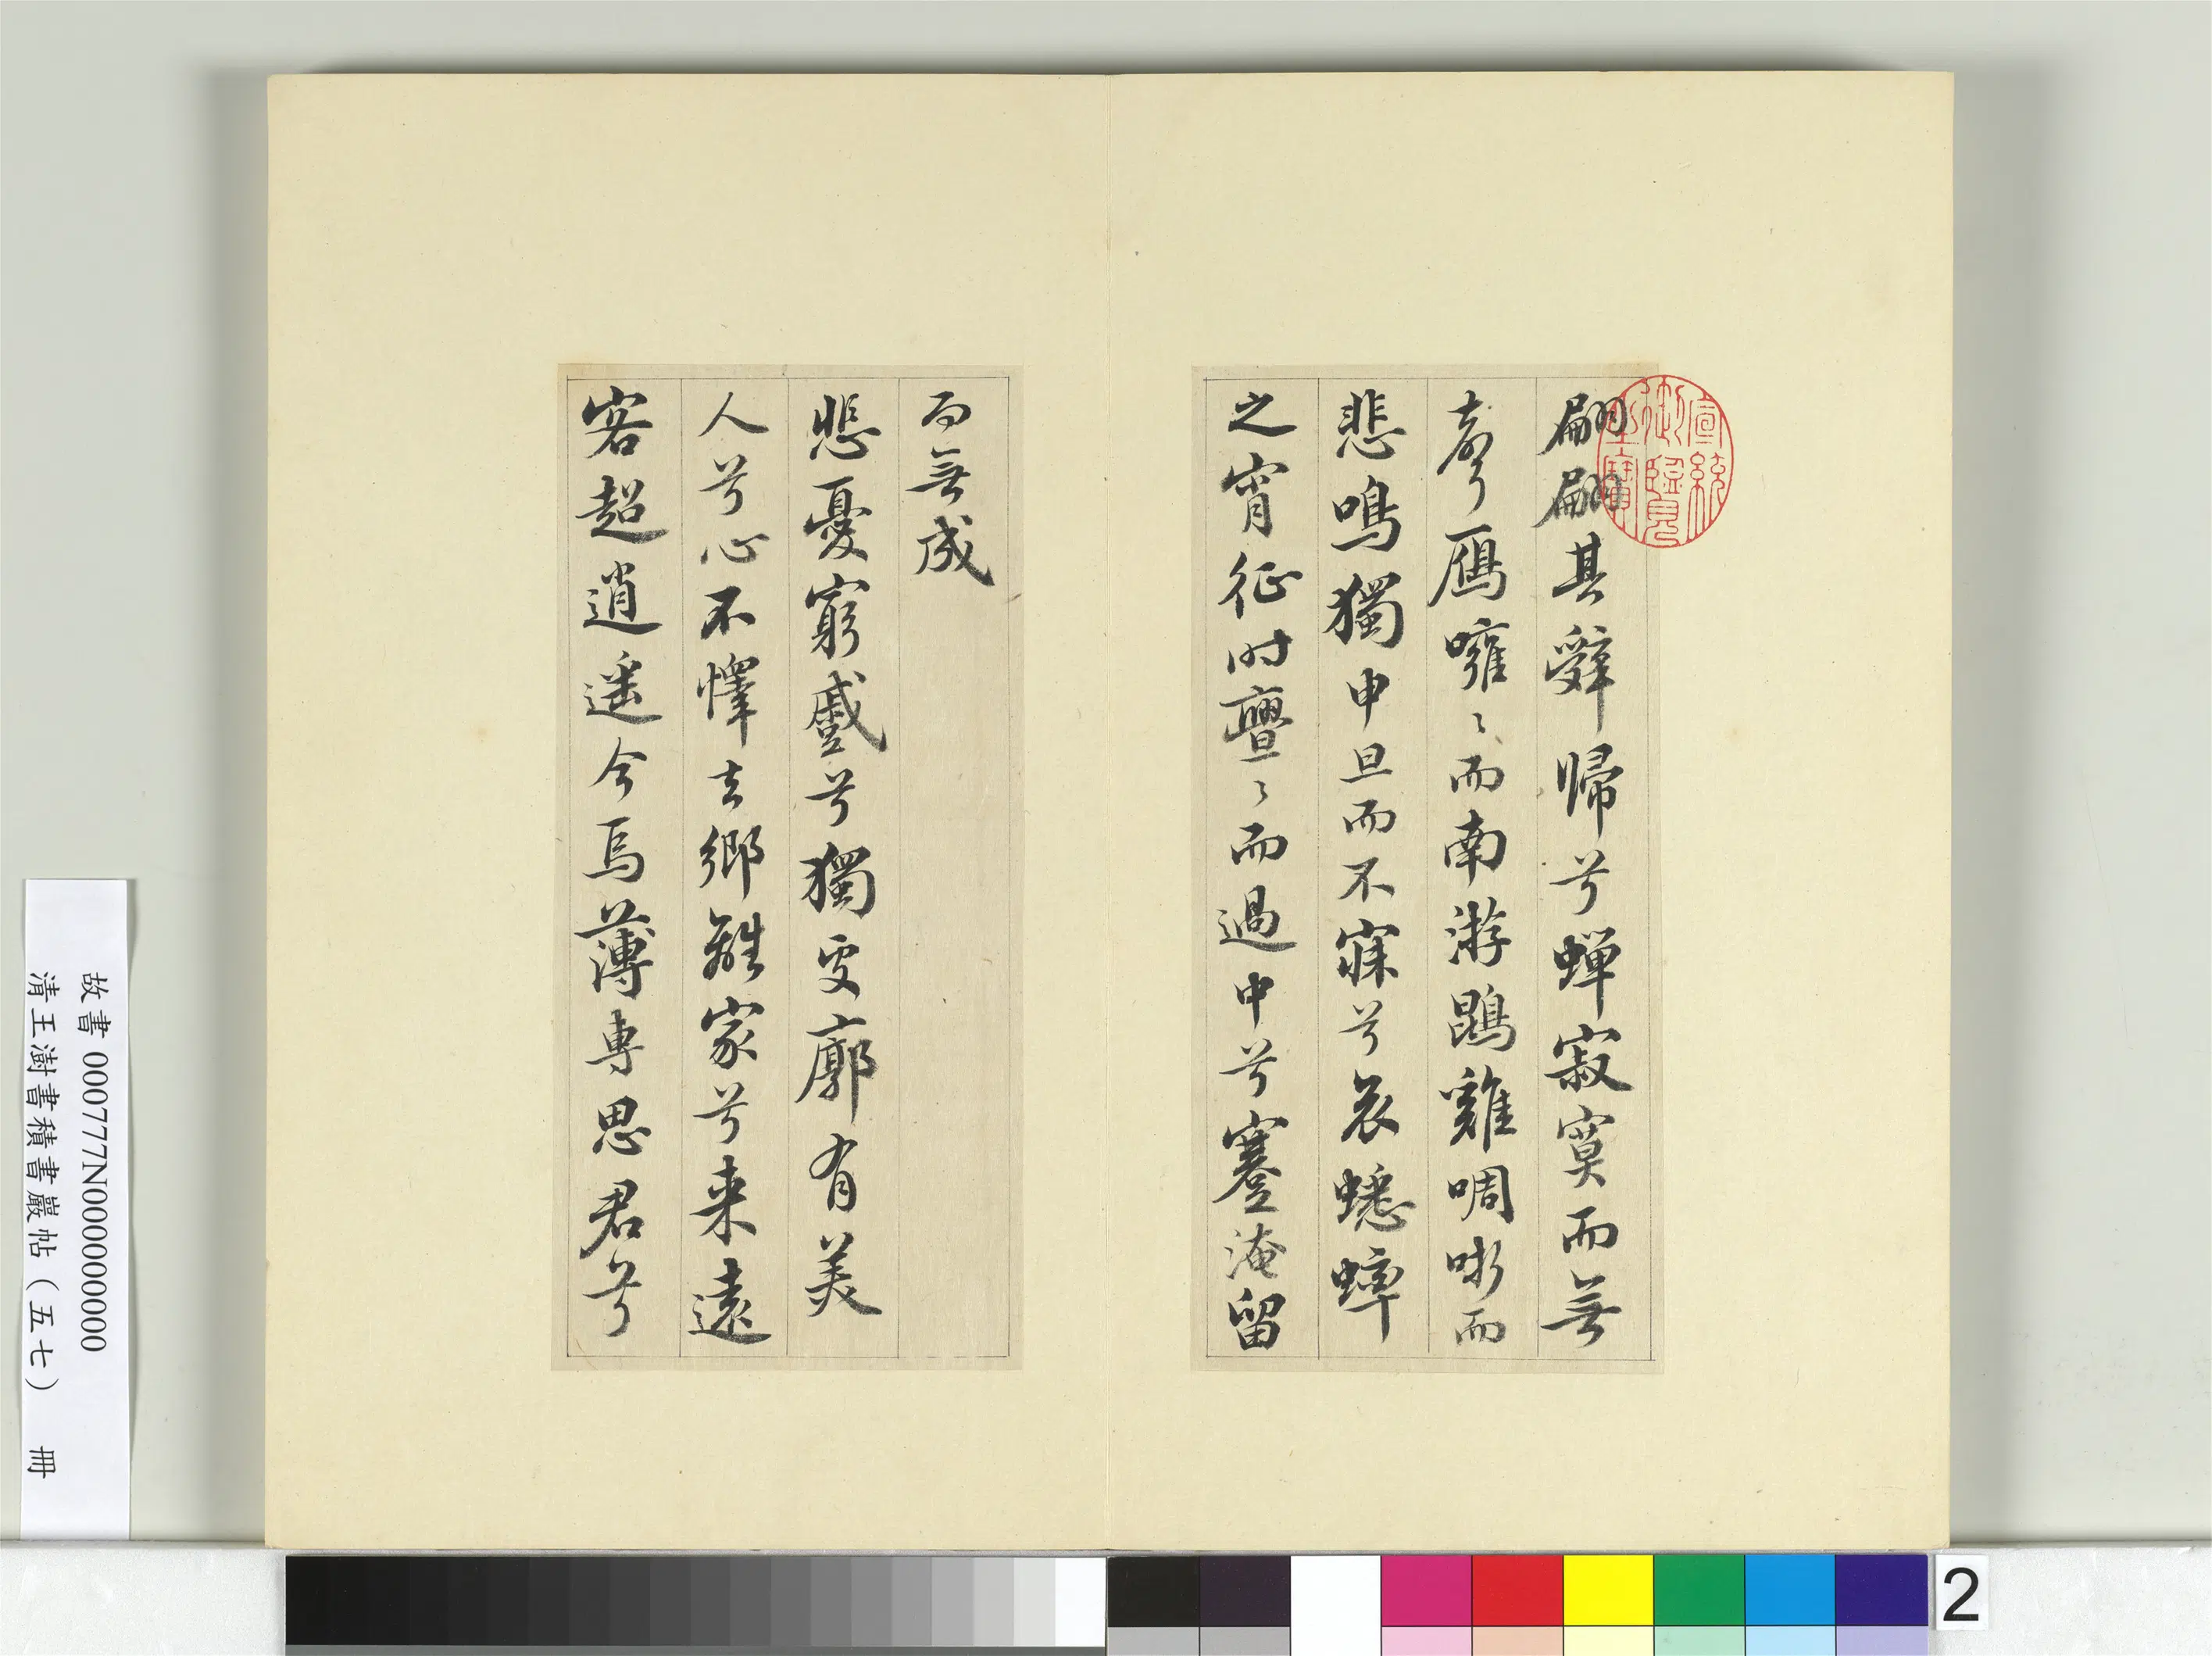 翩翩其辭歸兮蟬寂寞而無
聲雁嗈〻而南游鵾雞啁哳而
悲鳴獨申旦而不寐兮哀蟋蟀
之宵征时亹〻而過中兮蹇淹留
而無成
悲憂窮蹙兮獨處廓有美
人兮心不懌去鄉離家兮来遠
客超逍遥今焉薄專思君兮
宣統
御覽
之寶
故書 000777N000000000
清王澍書積書巖帖（五七） 冊
2